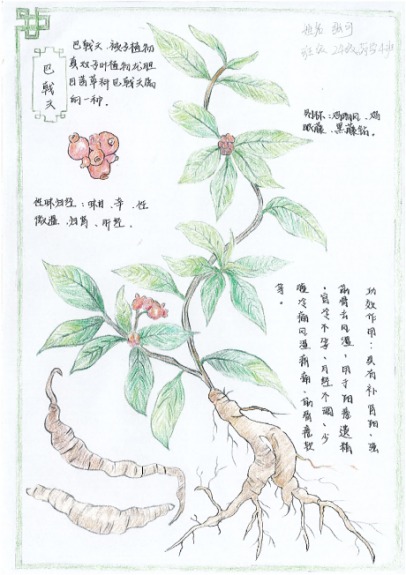 巴戟天
巴戟天,被子植物
真双子叶植物龙胆
目茜草科巴戟天属
的一种。
别称:鸡肠风、鸡
眼藤、黑藤钻。
性味归经:味甘、辛、性
微温,归肾、肝经。
功效作用:具有补肾阳,强
筋骨去风湿,用于阳痿遗精
,宫冷不孕,月经不调,少
腹冷痛风湿痹痛,筋骨痿软
等。
姓名
班级